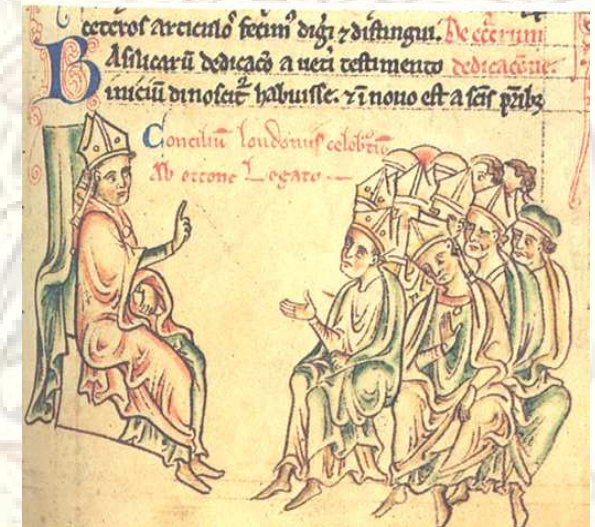 ceteros articulos fecim' digi ⁊ distingui. De
Basilicarū dedicacō a veti testimento dedicacōne.
iniciū dinoscit̄ habuisse. ⁊ ī novo est a scīs pr̄ibȝ
Conciliū londoniis celebrtū
Ab ottone Legato